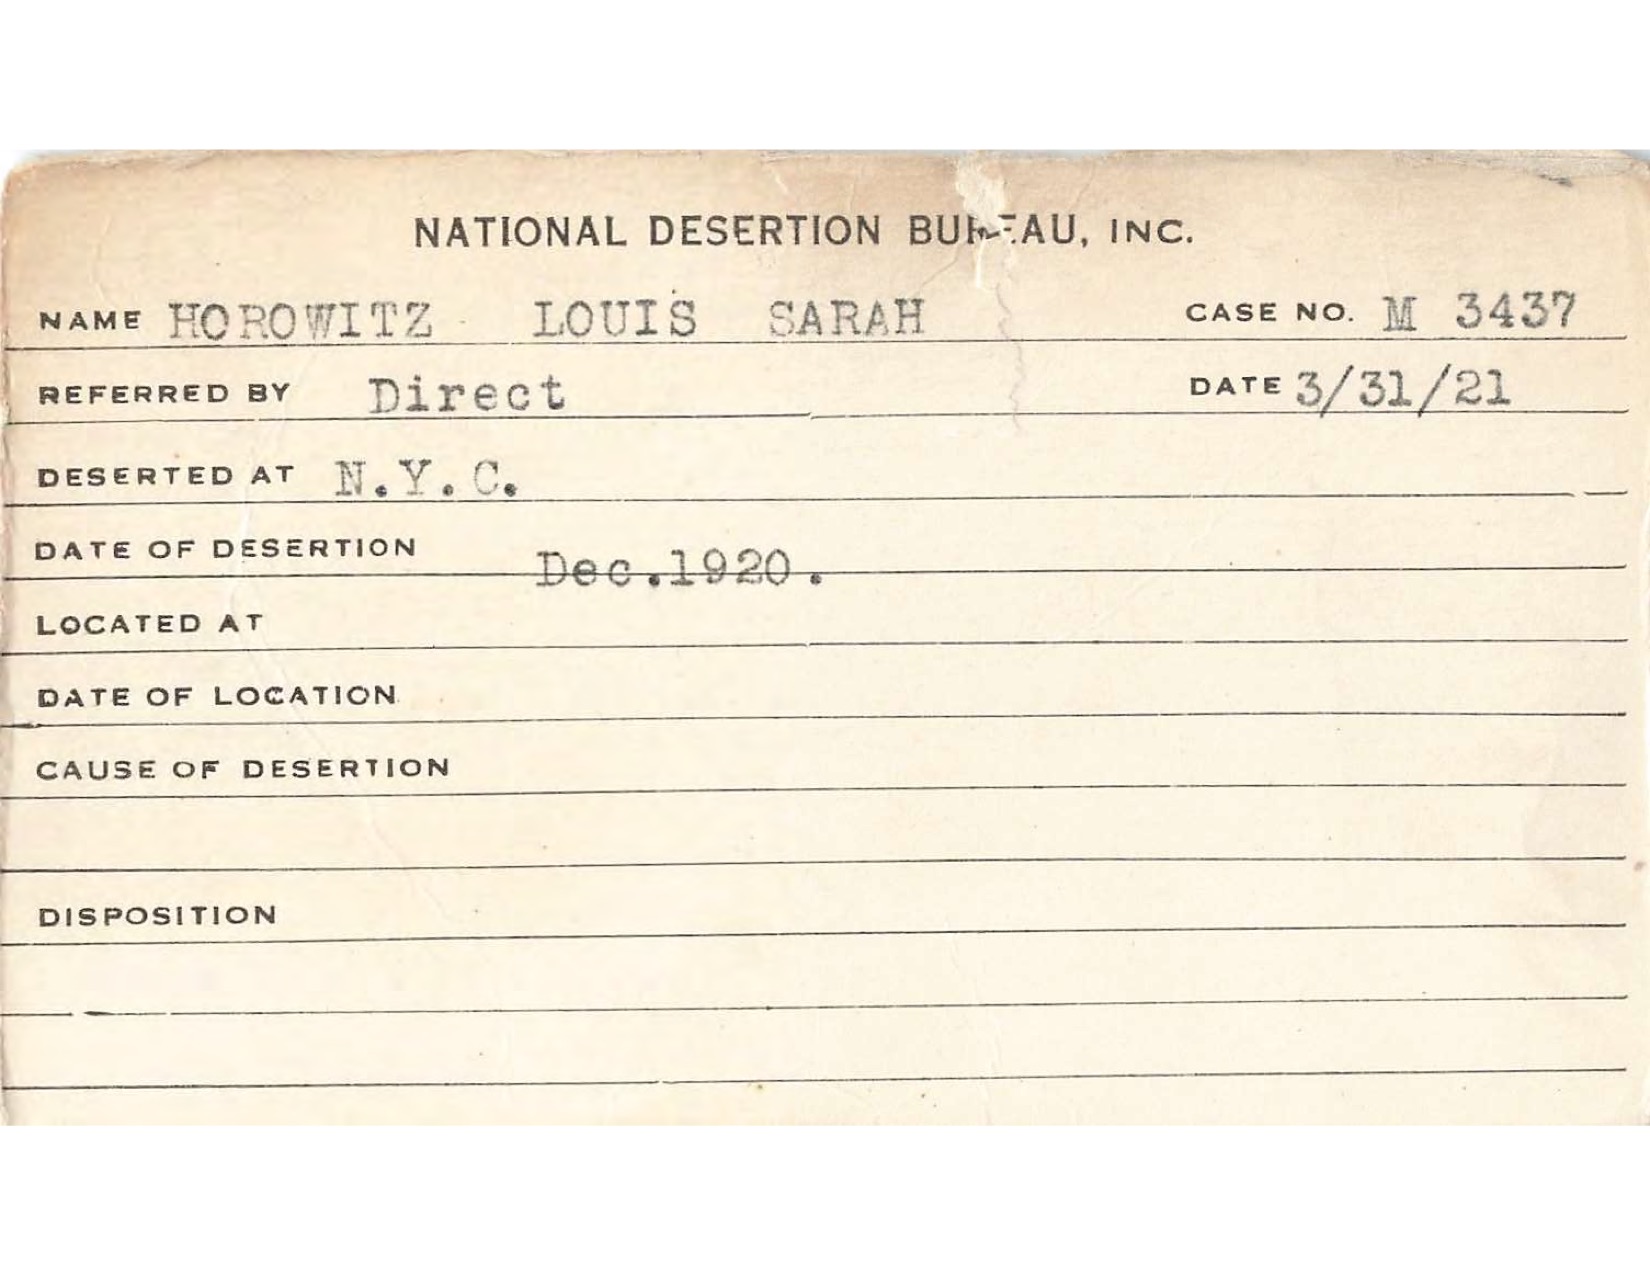 NATIONAL DESERTION BUREAU, INC.
NAME HOROWITZ LOUIS SARAH CASE NO. M 3437
REFERRED BY Direct DATE 3/31/21
DESERTED AT N.Y.C.
DATE OF DESERTION Dec.1920.
LOCATED AT
DATE OF LOCATION
CAUSE OF DESERTION
DISPOSITION